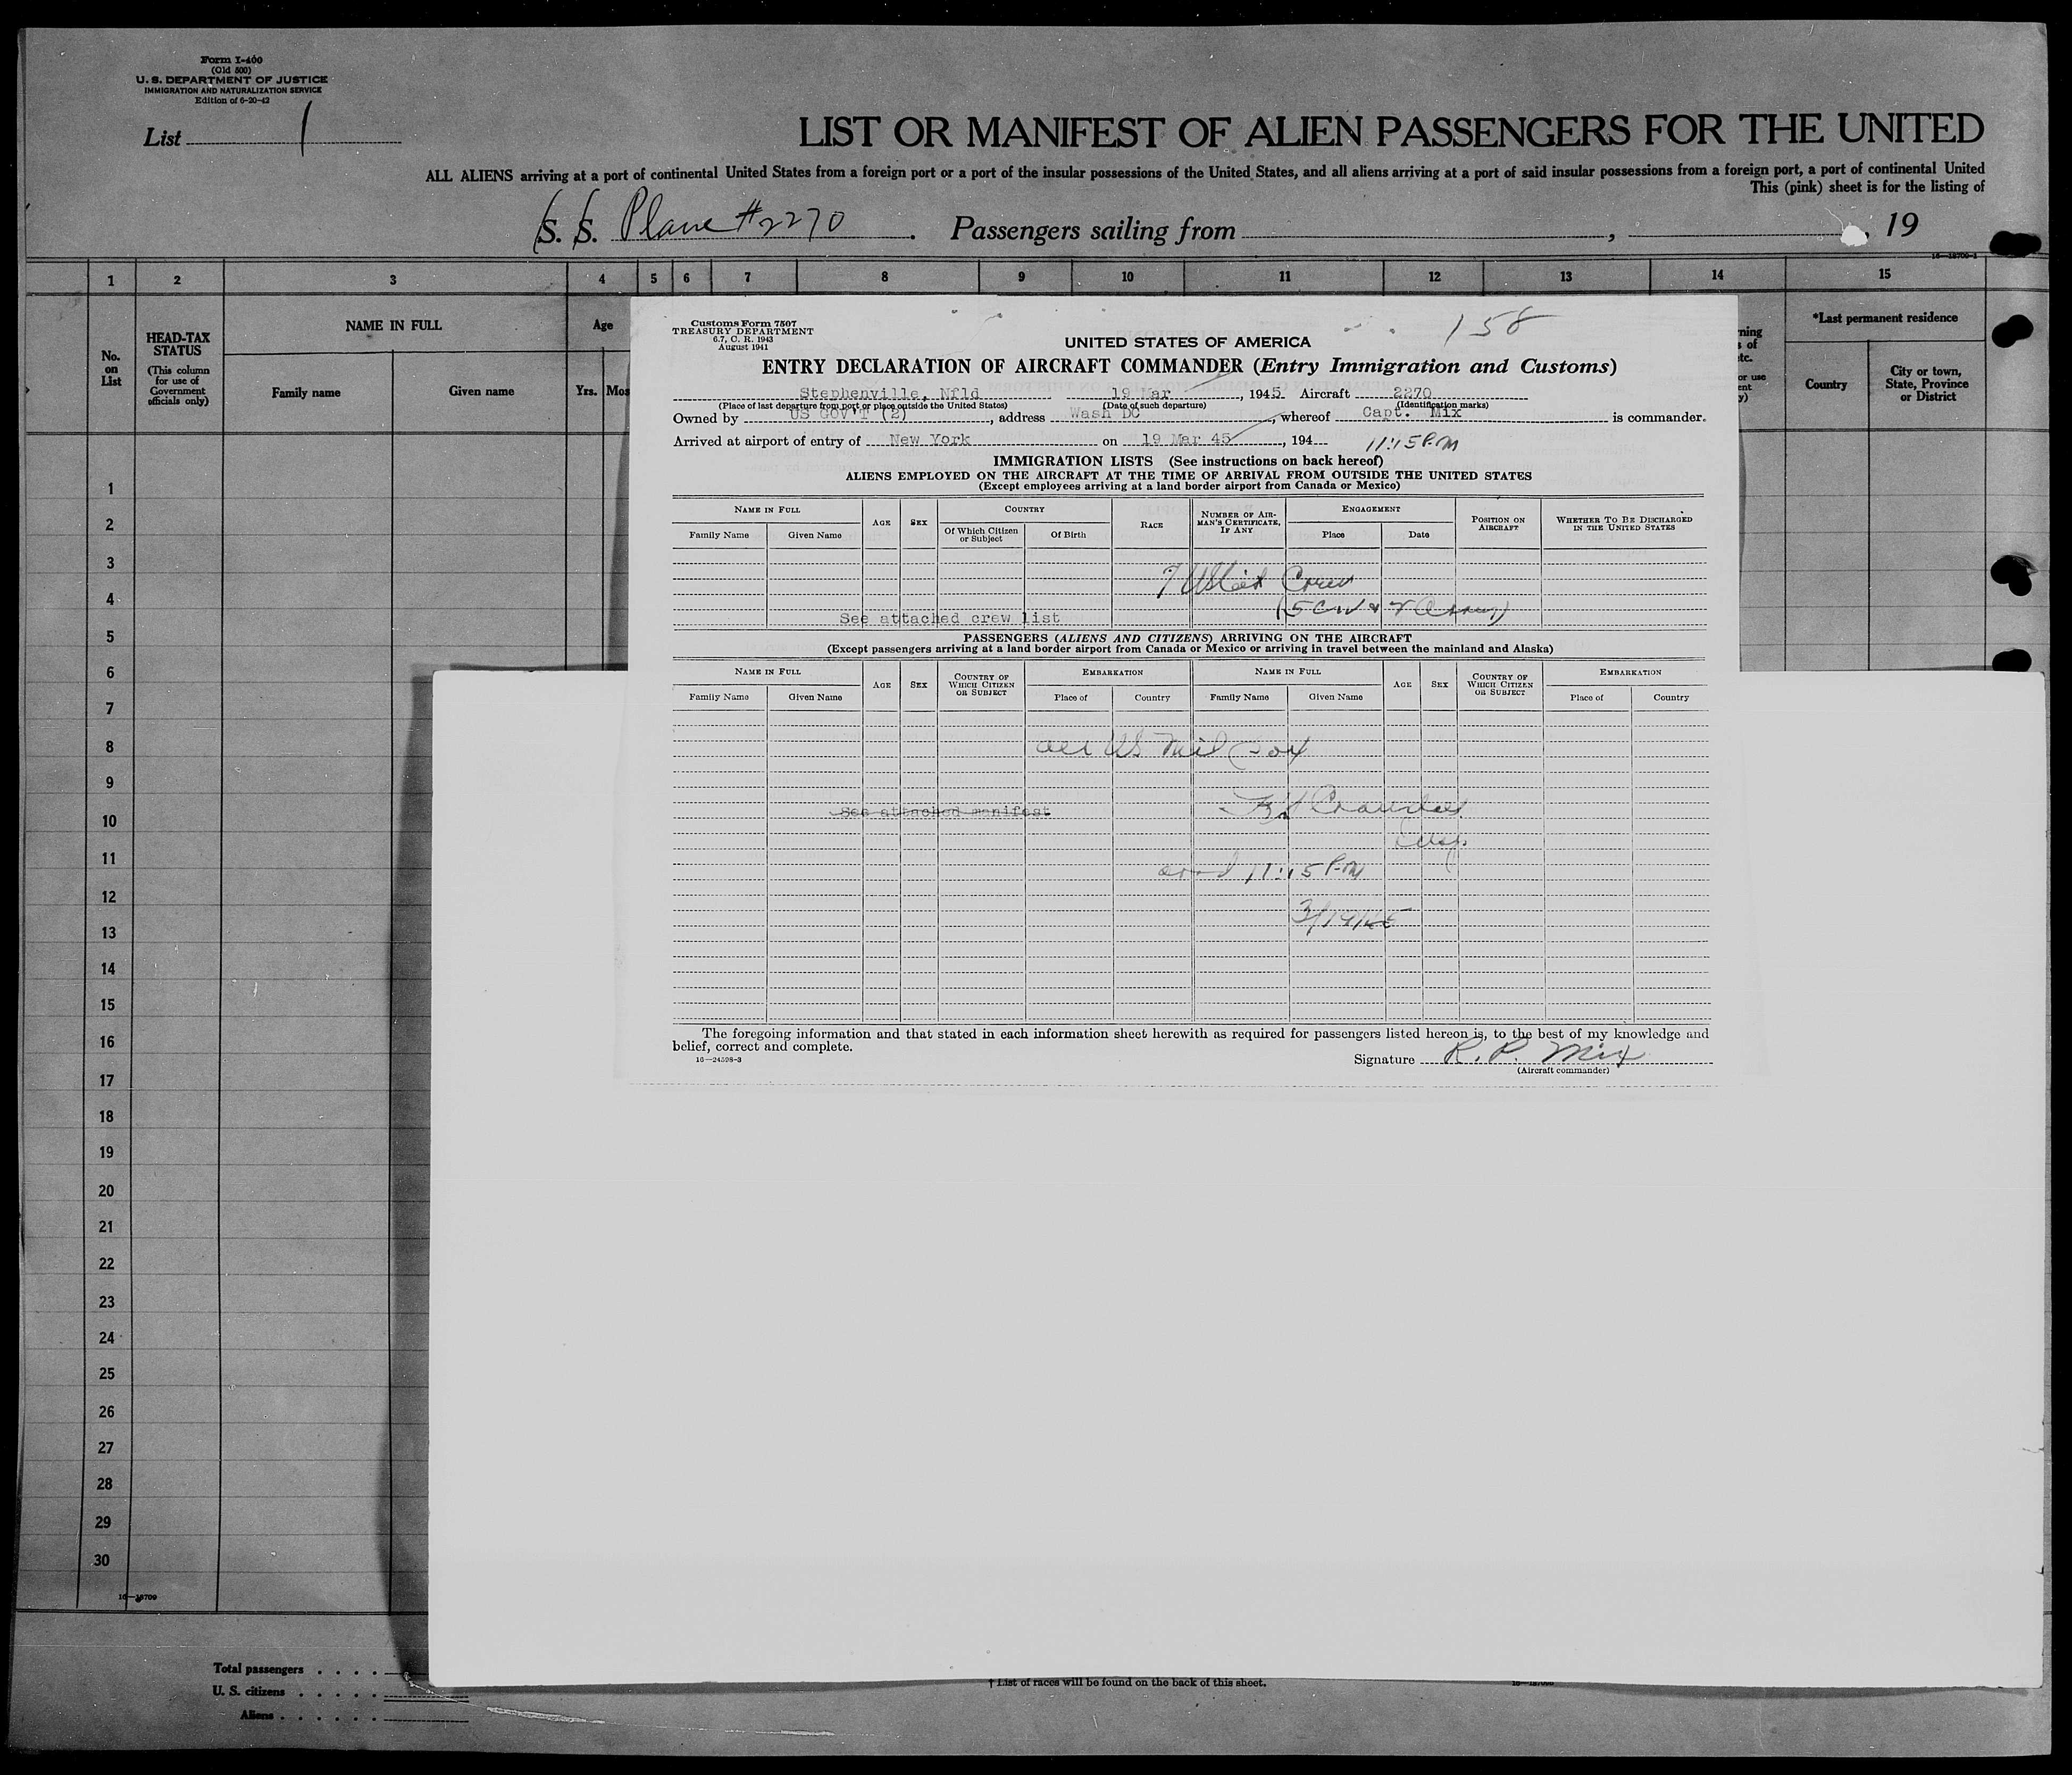 Form I-400
(Old 500)
U. S. DEPARTMENT OF JUSTICE
IMMIGRATION AND NATURALIZATION SERVICE
Edition of 6-20-42
List 1
LIST OR MANIFEST OF ALIEN PASSENGERS FOR THE UNITED
ALL ALIENS arriving at a port of continental United States from a foreign port or a port of the insular possessions of the United States, and all aliens arriving at a port of said insular possessions from a foreign port, a port of continental United
This (pink) sheet is for the listing of
S. S. Plane #2270 . Passengers sailing from , , 19
1 2 3 4 5 6 7 8 9 10 11 12 13 14 15
No. on List
HEAD-TAX STATUS
(This column for use of Government officials only)
NAME IN FULL
Family name Given name
Age
Yrs. Mos
*Last permanent residence
Country
City or town, State, Province or District
Customs Form 7507
TREASURY DEPARTMENT
6.7, C. R. 1943
August 1941
158
UNITED STATES OF AMERICA
ENTRY DECLARATION OF AIRCRAFT COMMANDER (Entry Immigration and Customs)
Stephenville, Nfld 19 Mar , 1945 Aircraft 2270
(Place of last departure from port or place outside the United States) (Date of such departure) (Identification marks)
Owned by US GOV'T (2) , address Wash DC , whereof Capt. Mix is commander.
Arrived at airport of entry of New York on 19 Mar 45 , 194 11:15 P.M
IMMIGRATION LISTS (See instructions on back hereof)
ALIENS EMPLOYED ON THE AIRCRAFT AT THE TIME OF ARRIVAL FROM OUTSIDE THE UNITED STATES
(Except employees arriving at a land border airport from Canada or Mexico)
NAME IN FULL
Family Name Given Name
AGE SEX
COUNTRY
Of Which Citizen or Subject Of Birth
RACE
NUMBER OF AIRMAN'S CERTIFICATE, IF ANY
ENGAGEMENT
Place Date
POSITION ON AIRCRAFT
WHETHER TO BE DISCHARGED IN THE UNITED STATES
7 Crew
See attached crew list
PASSENGERS (ALIENS AND CITIZENS) ARRIVING ON THE AIRCRAFT
(Except passengers arriving at a land border airport from Canada or Mexico or arriving in travel between the mainland and Alaska)
NAME IN FULL AGE SEX COUNTRY OF WHICH CITIZEN OR SUBJECT EMBARKATION NAME IN FULL AGE SEX COUNTRY OF WHICH CITIZEN OR SUBJECT EMBARKATION
Family Name Given Name Place of Country Family Name Given Name Place of Country
all US Mil
See attached manifest
Insp.
arrd 11:15 P.M
3/19/45
The foregoing information and that stated in each information sheet herewith as required for passengers listed hereon is, to the best of my knowledge and
belief, correct and complete.
16—24598-3
Signature R. P. Mix
(Aircraft commander)
1
2
3
4
5
6
7
8
9
10
11
12
13
14
15
16
17
18
19
20
21
22
23
24
25
26
27
28
29
30
16—18709
Total passengers
U. S. citizens
Aliens
† List of races will be found on the back of this sheet.